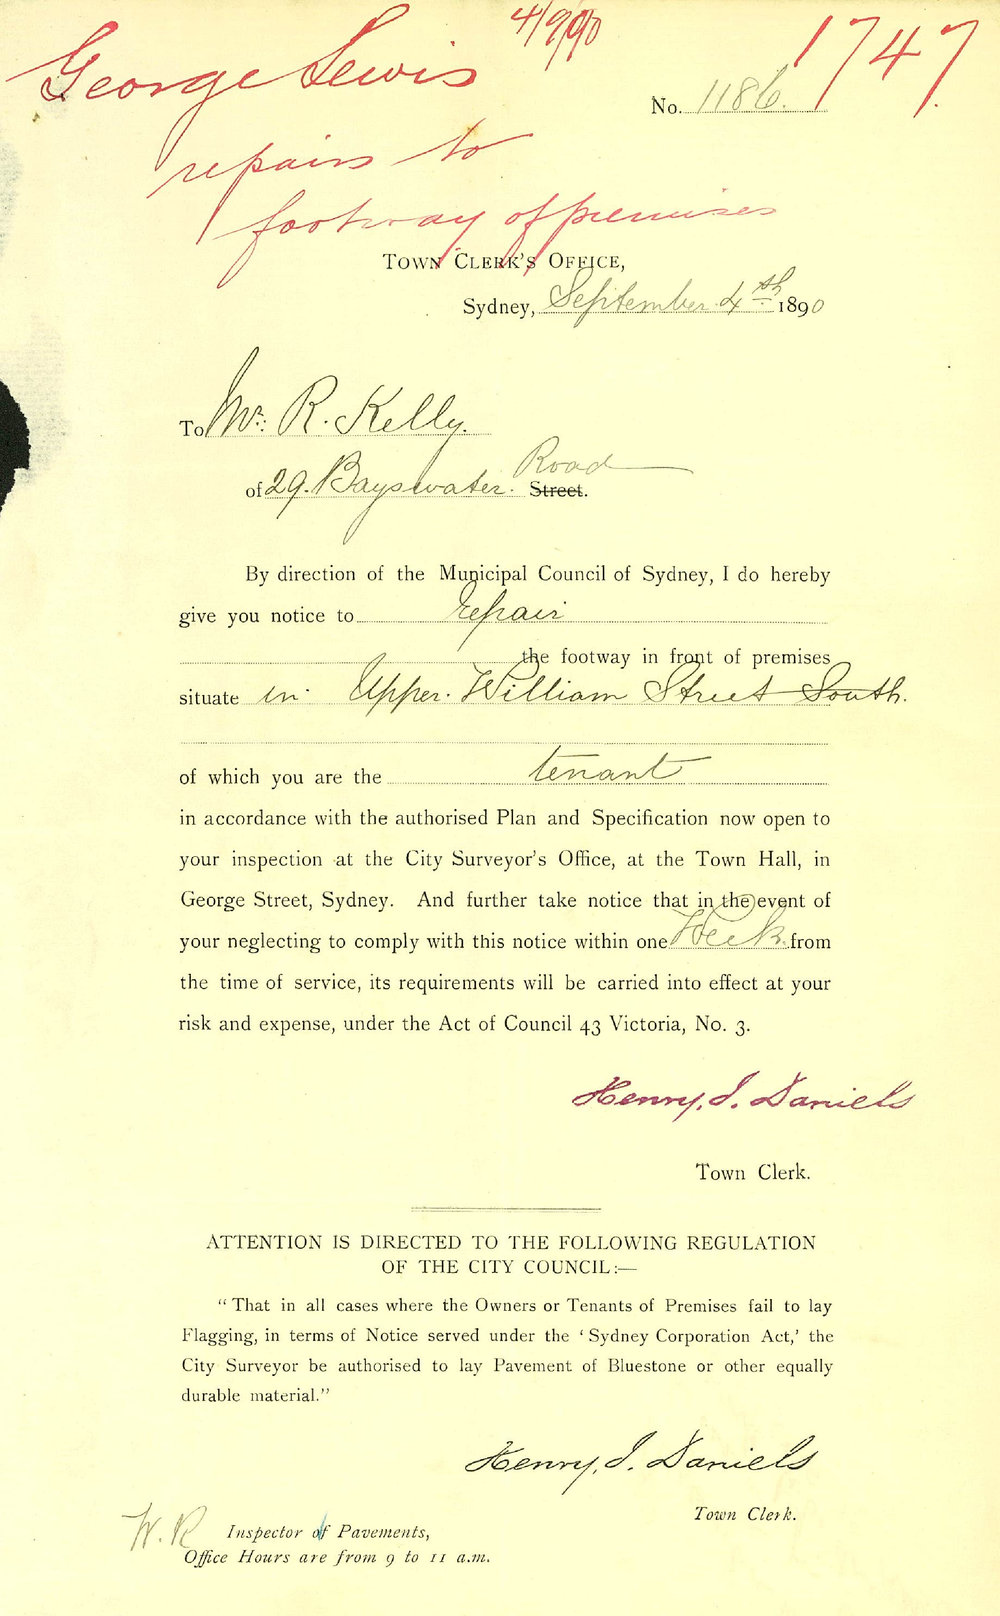 4/9/90
1747
George Lewis
No. 1186.
repairs to
footway of premises
Town Clerk's Office,
Sydney, September 4th 1890
To Mr. R. Kelly.
Road
of 29. Bayswater. Street.
By direction of the Municipal Council of Sydney, I do hereby
give you notice to repair
the footway in front of premises
situate in Upper. William Street South.
of which you are the tenant
in accordance with the authorised Plan and Specification now open to
your inspection at the City Surveyor's Office, at the Town Hall, in
George Street, Sydney. And further take notice that in the event of
your neglecting to comply with this notice within one Week from
the time of service, its requirements will be carried into effect at your
risk and expense, under the Act of Council 43 Victoria, No. 3.
Henry. J. Daniels
Town Clerk.
ATTENTION IS DIRECTED TO THE FOLLOWING REGULATION
OF THE CITY COUNCIL:—
"That in all cases where the Owners or Tenants of Premises fail to lay
Flagging, in terms of Notice served under the 'Sydney Corporation Act,' the
City Surveyor be authorised to lay Pavement of Bluestone or other equally
durable material."
Henry. J. Daniels
Town Clerk.
W. R Inspector of Pavements,
Office Hours are from 9 to 11 a.m.